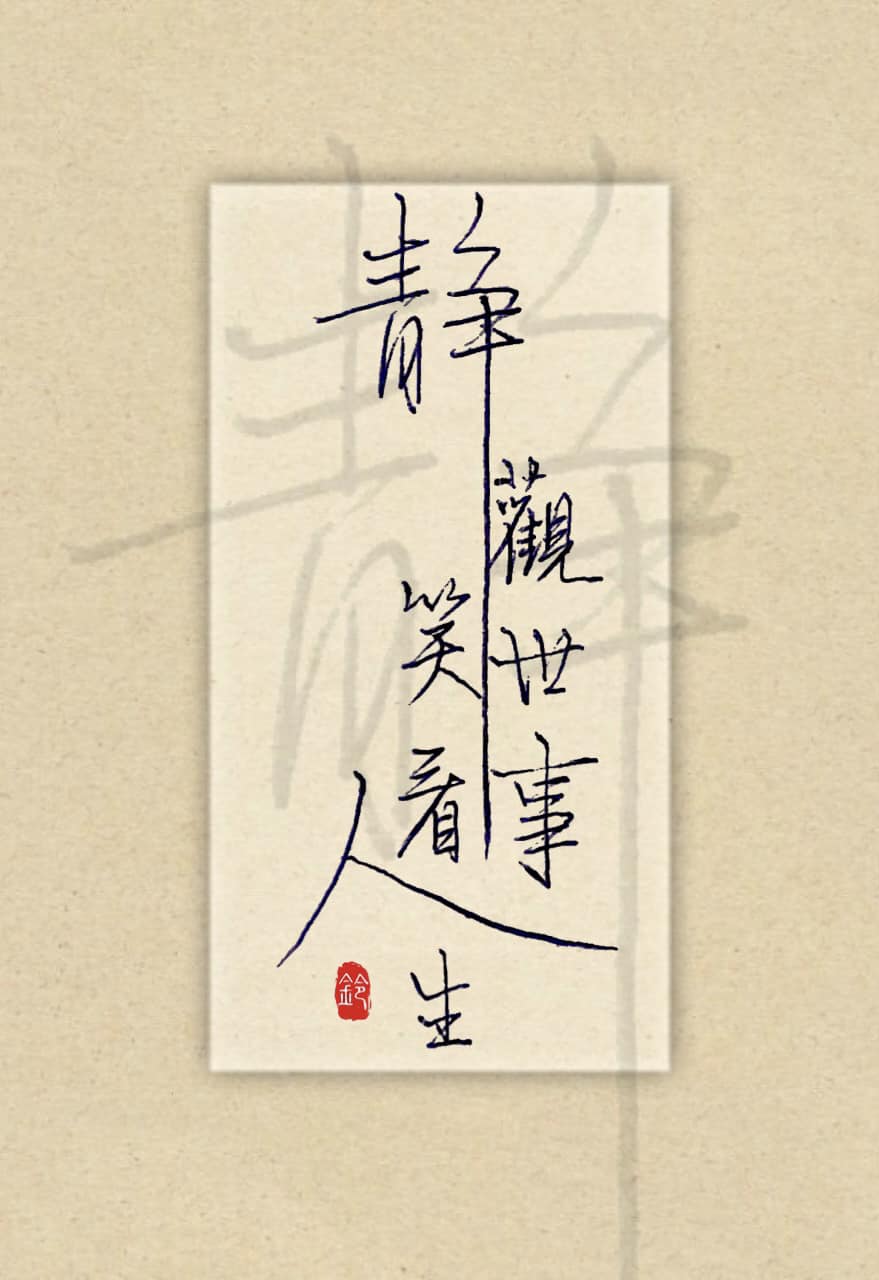 静觀世事
笑看人生
鈴